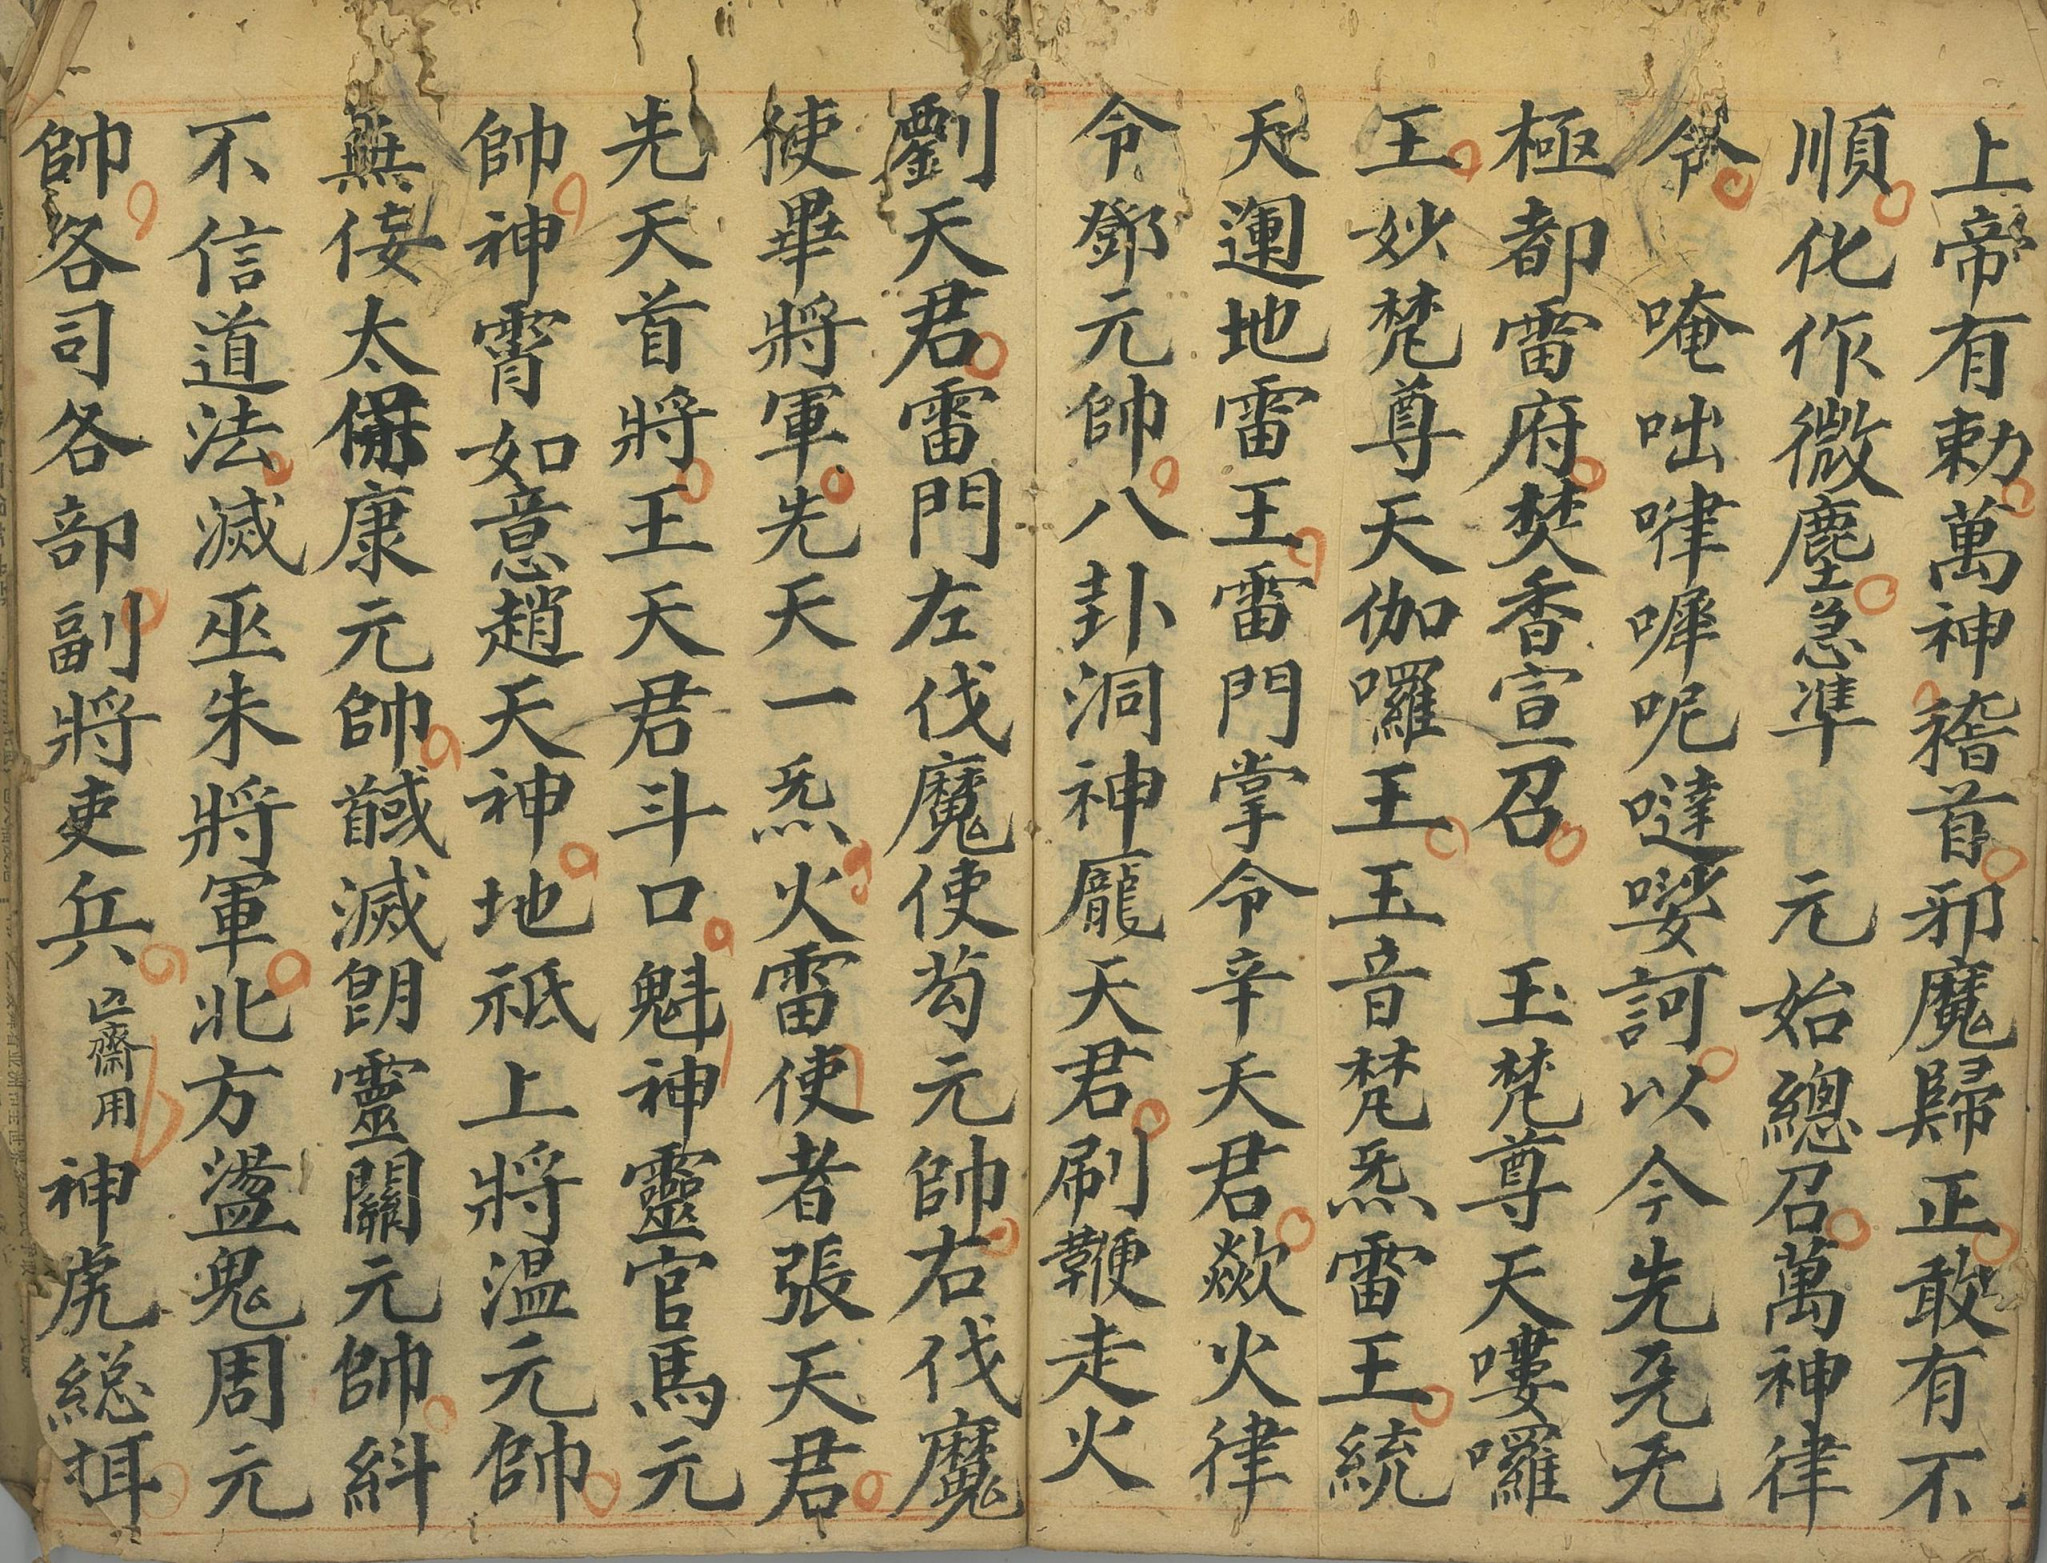 上帝有勅萬神稽首邪魔歸正敢有不
順化作微塵急準　元始總召萬神律
令　唵咄嘩㘄呢噠㗭訶以今先天无
極都雷府焚香宣召　玉梵尊天嘍囉
王妙梵尊天伽囉王玉音梵炁雷王統
天運地雷王雷門掌令辛天君歘火律
令鄧元帥八卦洞神龐天君刷鞭走火
劉天君雷門左伐魔使苟元帥右伐魔
使畢將軍先天一炁火雷使者張天君
先天首將王天君斗口魁神靈官馬元
帥神霄如意趙天神地祇上將温元帥
無侫太保康元帥馘滅朗靈關元帥糾
不信道法滅巫朱將軍北方盪鬼周元
帥各司各部副將吏兵 亡齋用 神虎総